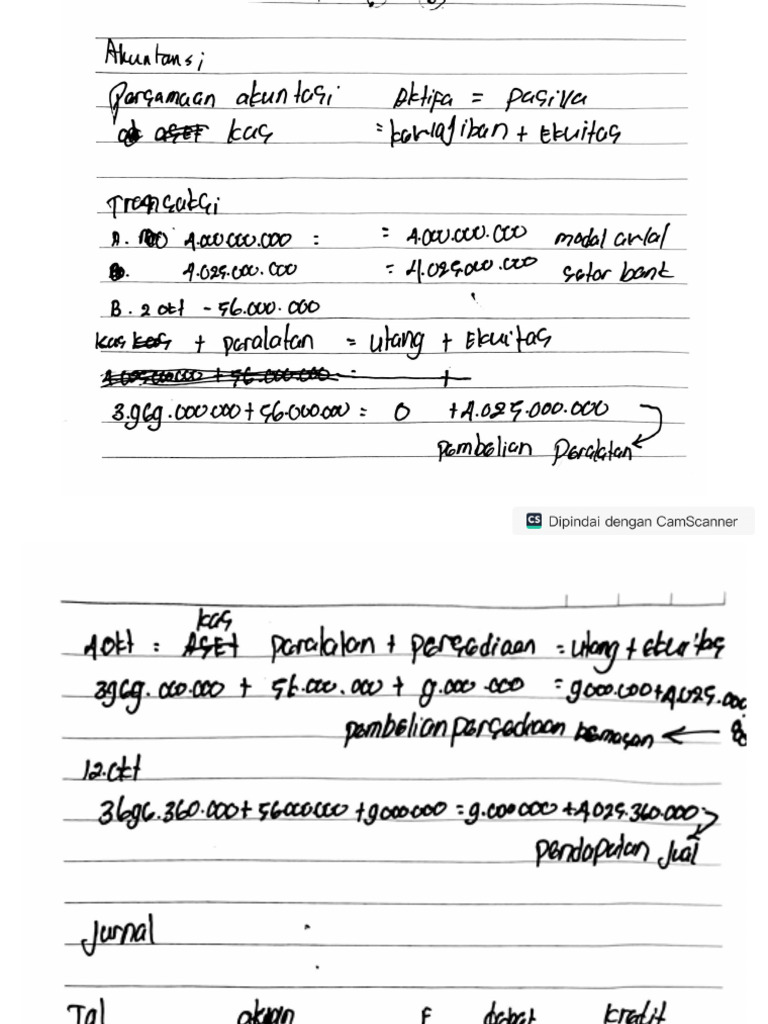 Akuntansi
Persamaan akuntasi Aktifa = pasiva
kas = kewajiban + Ekuitas
Transaksi
A. 4.000.000.000 = = 4.000.000.000 modal awal
4.025.000.000 = 4.025.000.000 setor bank
B. 2 okt - 56.000.000
kas + peralatan = utang + Ekuitas
3.969.000.000 + 56.000.000 = 0 + 4.025.000.000
Pembelian Peralatan
CS Dipindai dengan CamScanner
kas
4 okt = ASET peralatan + persediaan = utang + ekuitas
3969.000.000 + 56.000.000 + 9.000.000 = 9000.000 + 4.025.000
pembelian persediaan kemasan
12.okt
3696.360.000 + 56000000 + 9000000 = 9.000000 + 4025.360.000
Pendapatan Jual
Jurnal
Tgl akun F debet kredit